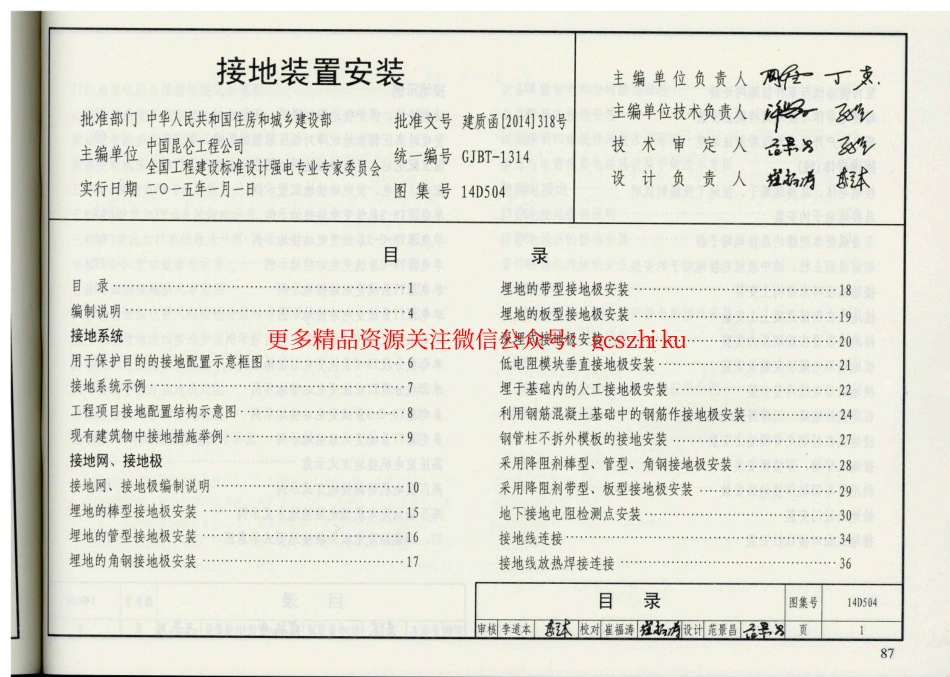 接地装置安装
批准部门 中华人民共和国住房和城乡建设部
批准文号 建质函[2014]318号
主编单位 中国昆仑工程公司
全国工程建设标准设计强电专业专家委员会
统一编号 GJBT-1314
实行日期 二〇一五年一月一日
图集号 14D504
主编单位负责人
主编单位技术负责人
技术审定人
设计负责人
目 录
目 录 1
编制说明 4
接地系统
用于保护目的的接地配置示意框图 6
接地系统示例 7
工程项目接地配置结构示意图 8
现有建筑物中接地措施举例 9
接地网、接地极
接地网、接地极编制说明 10
埋地的棒型接地极安装 15
埋地的管型接地极安装 16
埋地的角钢接地极安装 17
埋地的带型接地极安装 18
埋地的板型接地极安装 19
接地极安装 20
低电阻模块垂直接地极安装 21
埋于基础内的人工接地极安装 22
利用钢筋混凝土基础中的钢筋作接地极安装 24
钢管柱不拆外模板的接地安装 27
采用降阻剂棒型、管型、角钢接地极安装 28
采用降阻剂带型、板型接地极安装 29
地下接地电阻检测点安装 30
接地线连接 34
接地线放热焊接连接 36
更多精品资源关注微信公众号：gcszhi ku
目 录
图集号 14D504
审核 李道本 校对 崔福涛 设计 范景昌 页 1
87